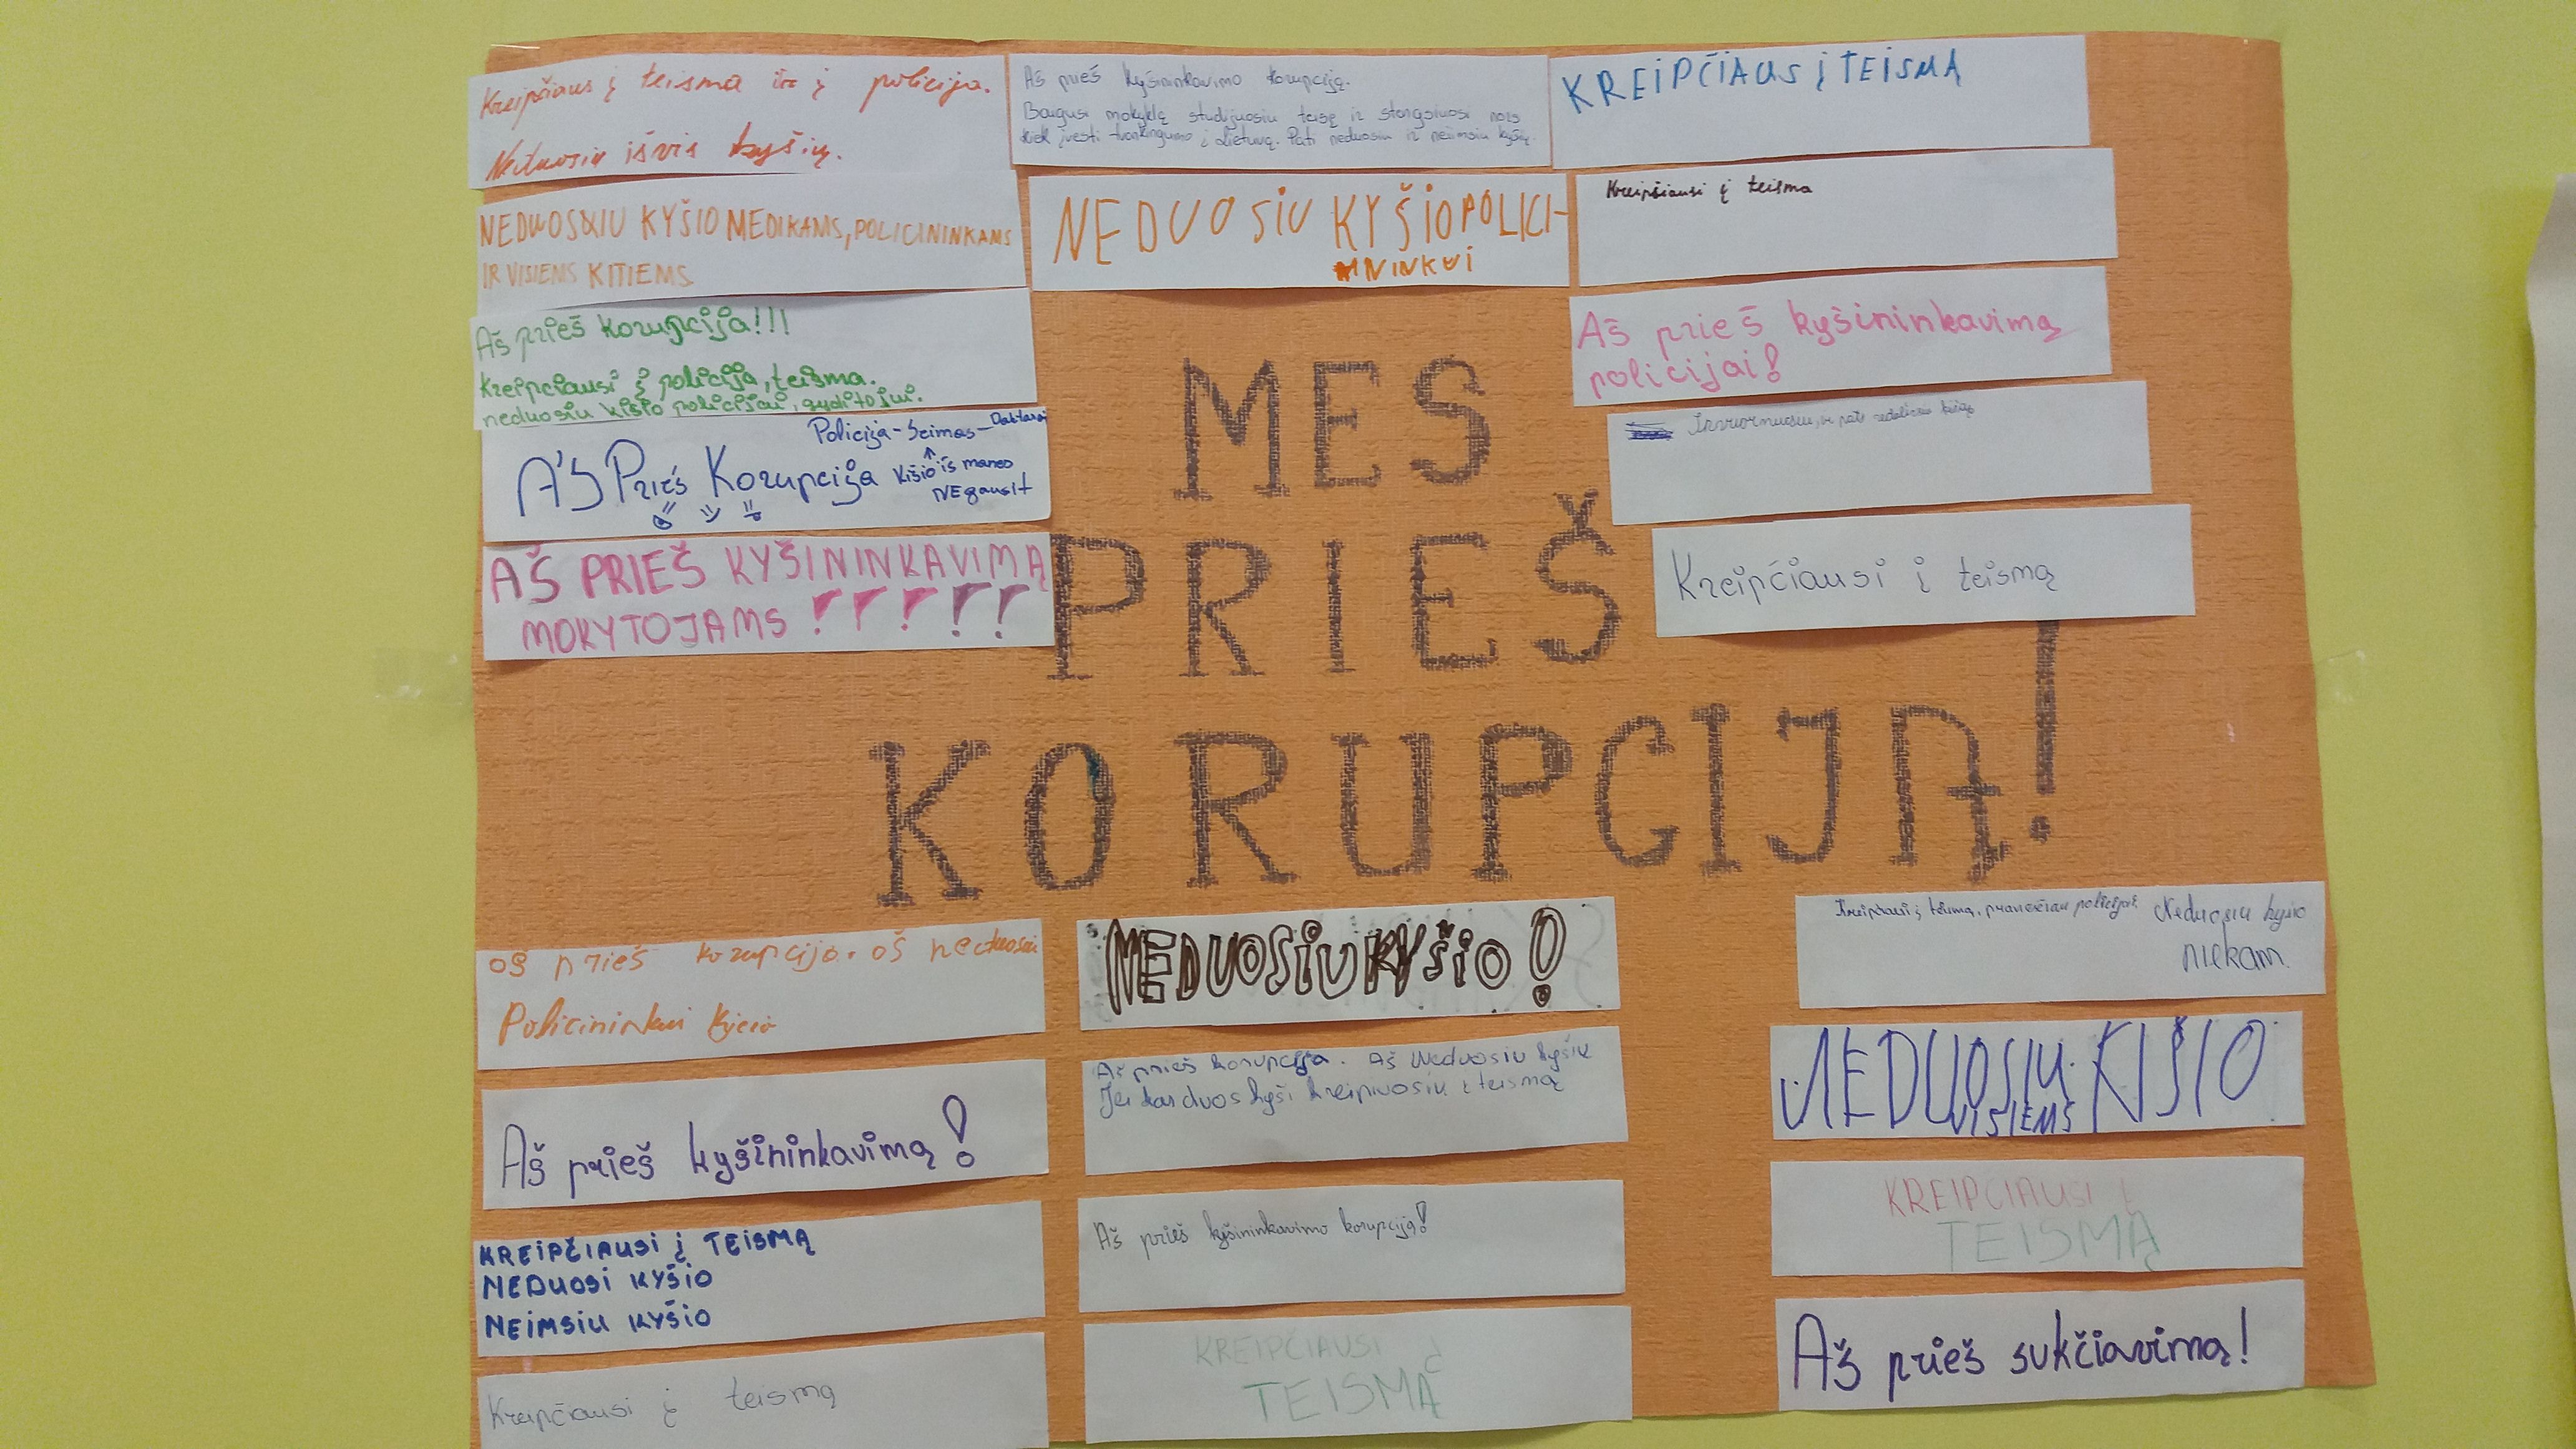 Kreipčiaus į teisma ir į policija.
Neduosiu išvis kyšių.
NEDUOSIU KYŠIO MEDIKAMS, POLICININKAMS
IR VISIEMS KITIEMS
Aš prieš korupcija!!!
Kreipčiausi į policija, teisma.
neduosiu kišio policijai, gyditojui.
Policija-Seimas-Daktarai
AŠ Prieš Korupcija
Kišio iš manes
NEgausit
AŠ PRIEŠ KYŠININKAVIMĄ
MOKYTOJAMS !!!!!
Aš prieš kyšininkavimo korupciją.
Baigusi mokyklą studijuosiu teisę ir stengsiuosi nors
kiek įvesti tvarkingumo į Lietuvą. Pati neduosiu ir neimsiu kyšių.
NEDUOSIU KYŠIO POLICI-
NINKUI
KREIPČIAUS Į TEISMĄ
Kreipčiausi į teisma
Aš prieš kyšininkavimą
policijai!
ir pats
Kreipčiausi į teismą
MES
PRIEŠ
KORUPCIJĄ!
aš prieš korupcija. aš neduosiu
Policininkui
Aš prieš kyšininkavimą!
KREIPČIAUSI Į TEISMĄ
NEDUOSI KYŠIO
NEIMSIU KYŠIO
Kreipčiausi į teismą
NEDUOSIU KYŠIO!
Aš prieš korupcija. Aš Neduosiu kyšių
Jei kas duos kyšį kreipiuosiu į teismą
Aš prieš kyšininkavimo korupciją!
KREIPČIAUSI Į
TEISMĄ
Kreipčiausi į teismą, praneščiau policijai. Neduosiu kyšio
niekam.
NEDUOSIU KIŠIO
VISIEMS
KREIPČIAUSI Į
TEISMĄ
Aš prieš sukčiavimą!